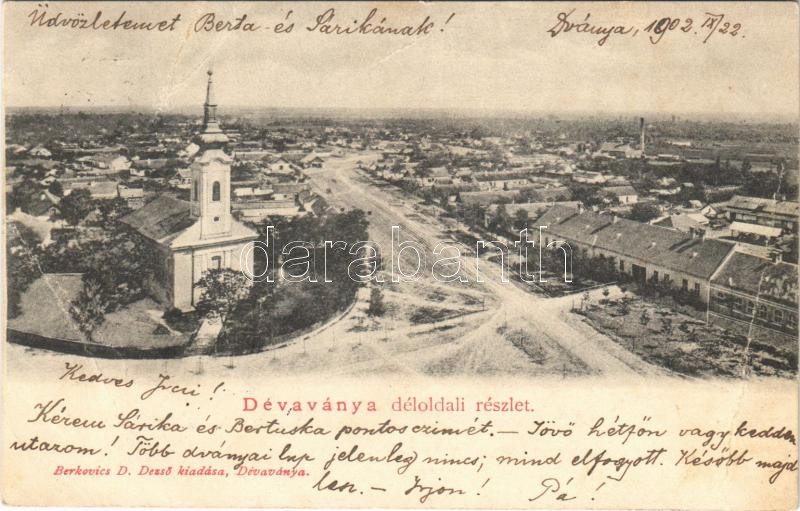 Üdvözletemet Berta és Sárikának!
Dványa, 1902. IX/22.
darabanth.com
Kedves Irci!
Dévaványa déloldali részlet.
Kérem Sárika és Bertuska pontos czimét. – Jövő hétfőn vagy kedden
utazom! Több dványai lap jelenleg nincs; mind elfogyott. Később majd
Berkovics D. Dezső kiadása, Dévaványa.
lesz. – Irjon! Pá!